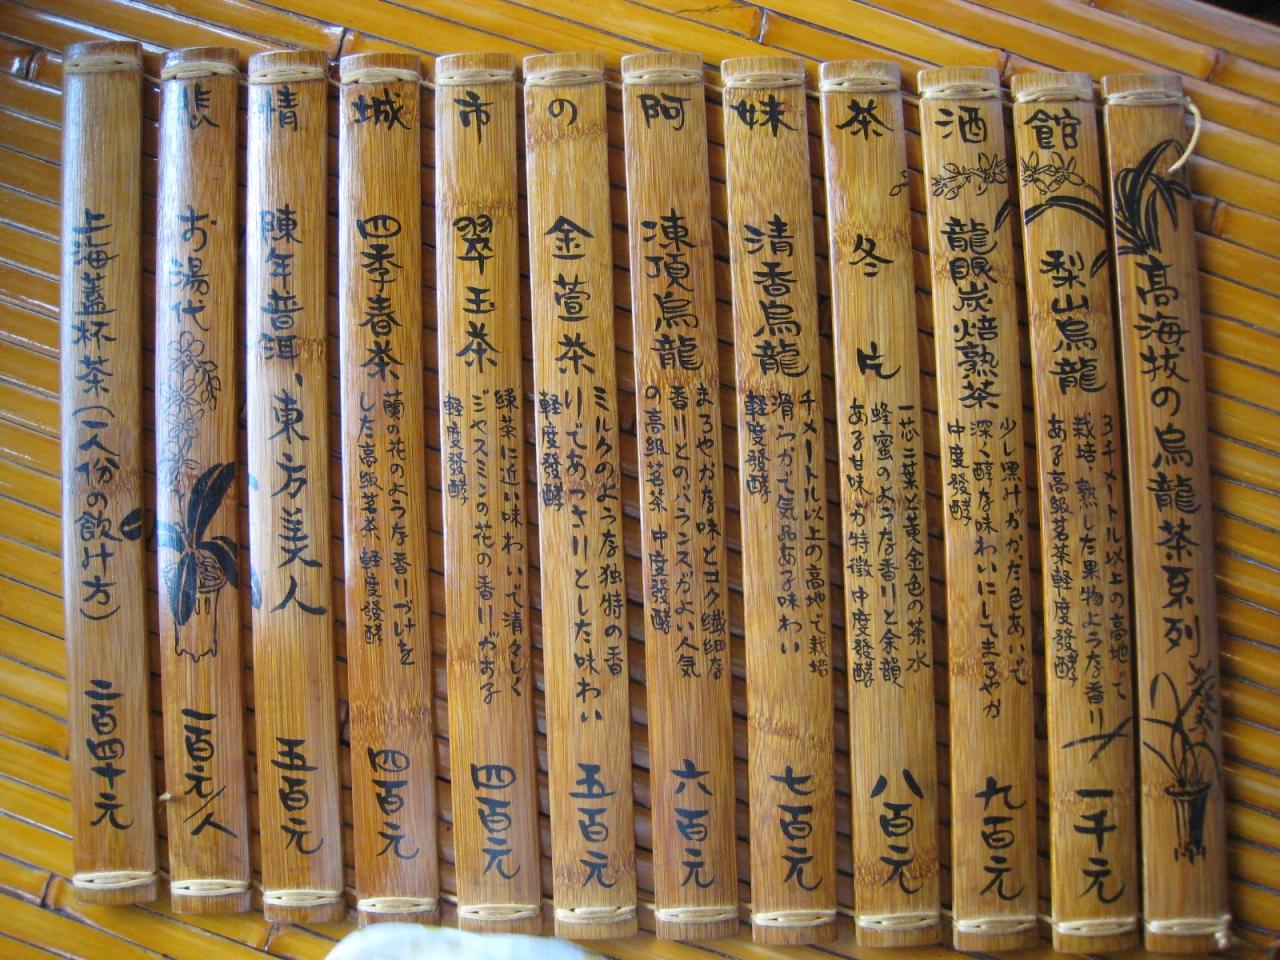 悲情城市の阿妹茶酒館
高海抜の烏龍茶系列
梨山烏龍
3千メートル以上の高地で
栽培・熟した果物ような香り
ある高級茗茶軽度發酵
一千元
龍眼炭焙熟茶
少し黒みがかた色あいで
深く醇な味わいにしてまろやか
中度發酵
九百元
冬片
一芯二葉と黄金色の茶水
蜂蜜のような香りと余韻
ある甘味が特徴 中度發酵
八百元
清香烏龍
千メートル以上の高地で栽培
滑らかで気品ある味わい
軽度發酵
七百元
凍頂烏龍
まろやかな味とコク繊細な
香りとのバランスがよい人気
の高級茗茶 中度發酵
六百元
金萱茶
ミルクのような独特の香
りであっさりとした味わい
軽度發酵
五百元
翠玉茶
緑茶に近い味わいで清々しく
ジャスミンの花の香りがある
軽度發酵
四百元
四季春茶
蘭の花のような香りづけを
した高級茗茶 軽度發酵
四百元
陳年普洱、東方美人
五百元
お湯代
一百元/人
上海蓋杯茶(一人份の飲み方)
二百四十元